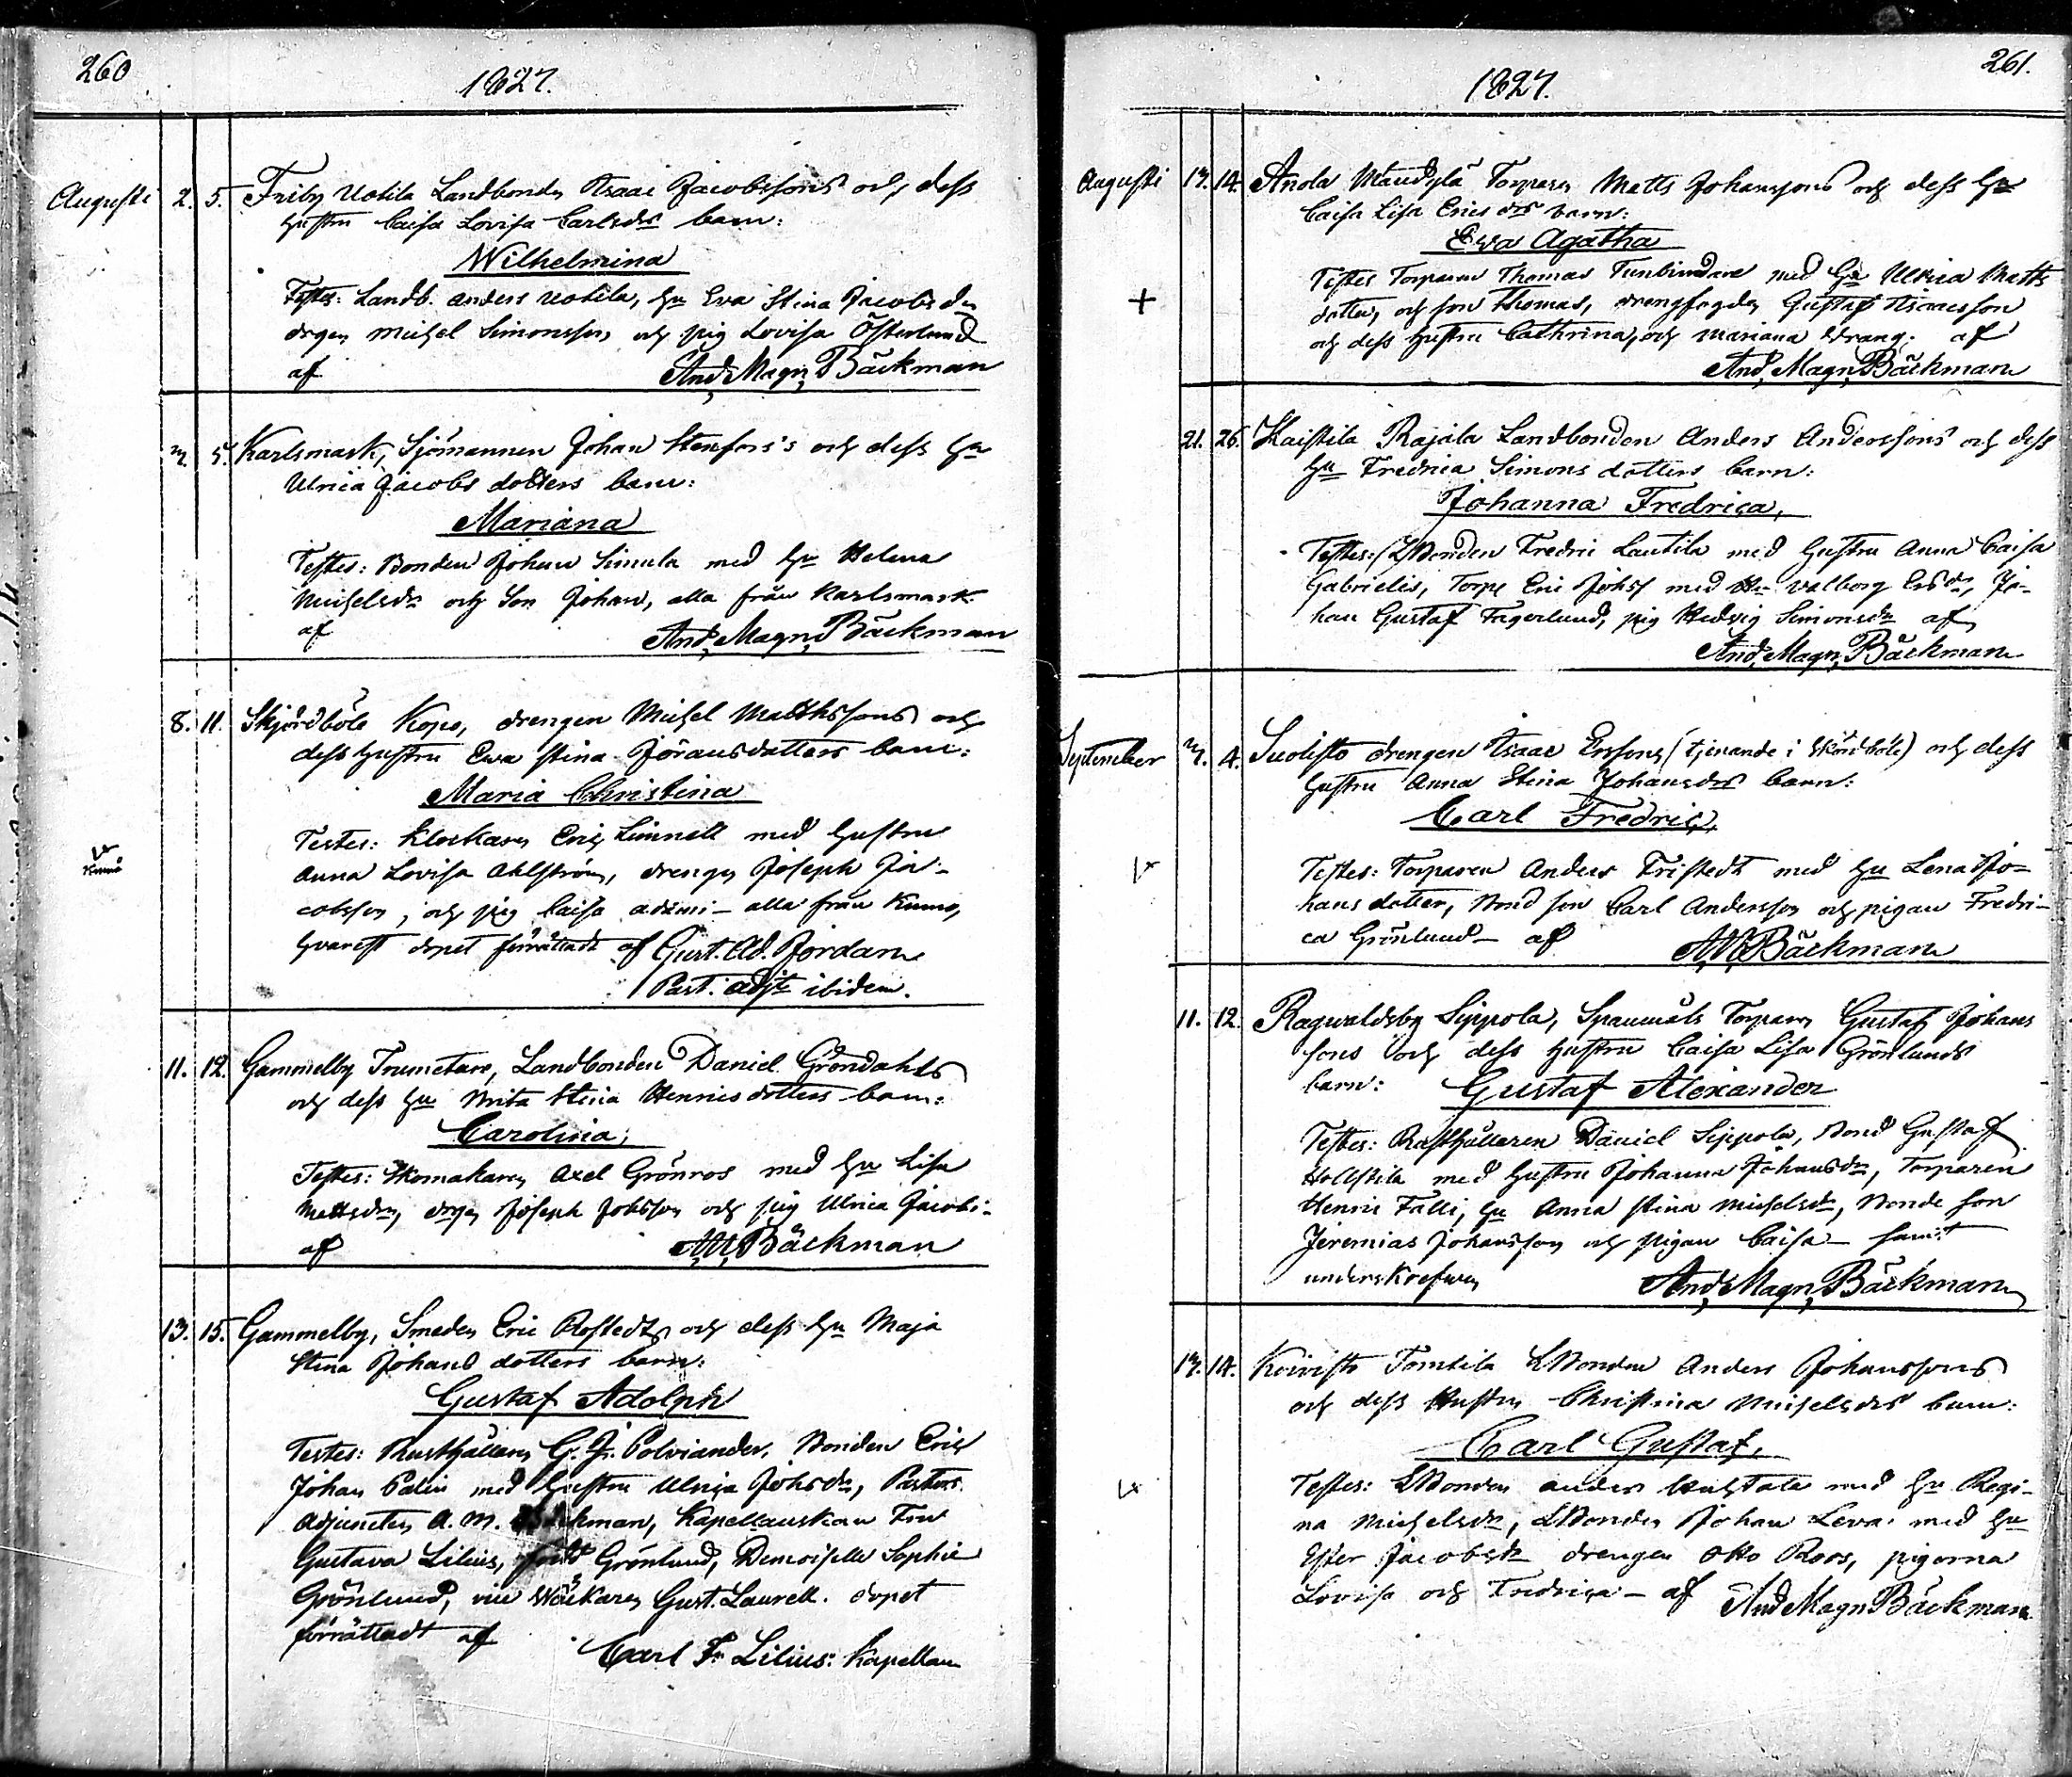 260
1827.
Augusti 2. 5. Friby Uotila Landbonden Isaac Jacobssons och dess
hustru Caisa Lovisa Carlsdrs barn:
Wilhelmina
Testes: Landb. Anders Uotila, hu Eva Stina Jacobsdr
drgen Michel Simonsson och pig Lovisa Österlund
af And. Magn. Bäckman
3. 5. Karlsmark, Sjömannen Johan Stenfors's och dess hu
Ulrica Jacobs dotters barn:
Mariana
Testes: Bonden Johan Simula med hu Helena
Michelsdr och Son Johan, alla från Karlsmark
af And. Magn. Bäckman
8. 11. Skjördböle Kopo, drengen Michel Matthssons och
dess hustru Ewa Stina Jöransdotters barn:
Maria Christina
Testes: Klockaren Eric Limnell med hustru
Anna Lovisa Ahlström, drengen Joseph Ja-
cobsson, och pig Caisa - alla från Kumo,
hvarest dopet förrättadt af Gust. Ad. Jordan
Past. adjt ibidem.
Kumo
11. 12. Gammelby Trumetare, Landbonden Daniel Gröndahls
och dess hu Brita Stina Henricsdotters barn:
Carolina
Testes: Skomakaren Axel Grönros med hu Lisa
Mattsdr, drgen Joseph Jobsson och pig Ulrica Jacobi-
af A. M. Bäckman
13. 15. Gammelby, Smeden Eric Rostedts och dess hu Maja
Stina Johans dotters barn:
Gustaf Adolph
Testes: Rusthållaren G. J. Polviander, Bonden Eric
Johan Palin med hustru Ulrica Johsdr, Pastors
Adjuncten A. M. Bäckman, Kapellanskan Fru
Gustava Lilius, född Grönlund, Demoiselle Sophie
Grönlund, Gust. Laurell. dopet
förrättadt af
Carl Fr. Lilius: Kapellan
261.
1827.
Augusti 13. 14. Anola Torparen Matts Johanssons och dess hu
Caisa Lisa Erics drs barn:
Ewa Agatha
Testes Torparen Thomas Tunbindare med hu Ulrica Matts
dotter, och son Thomas, drengfogden Gustaf Isacsson
och dess hustru Cathrina, och Mariana Wrang. af
And. Magn. Bäckman
21. 26. Kaistila Rajala Landbonden Anders Anderssons och dess
hu Fredrica Simons dotters barn:
Johanna Fredrica,
Testes: LBonden Fredric Lautila med hustru Anna Caisa
Gabrielis, Torpr Eric Johss med Hu Walborg Ersdr, Jo-
han Gustaf Fagerlund, pig Hedvig Simonsdr af
And. Magn. Bäckman
September 3. 4. Suolisto drengen Isaac Erssons (tjenande i Skördböle) och dess
hustru Anna Stina Johansdrs barn:
Carl Fredric,
Testes: Torparen Anders Fristedt med hu Lena Jo-
hans dotter, Bond son Carl Andersson och pigan Fredri-
ca Grönlund - af A. M. Bäckman
11. 12. Ragwaldsby Sippola, Torparen Gustaf Johans
sons och dess hustru Caisa Lisa Grönlunds
barn: Gustaf Alexander
Testes: Rusthållaren Daniel Sippola, Bond Gustaf
med hustru Johanna Johansdr, Torparen
Henric Falli, hu Anna Stina Michelsdr, Bonde son
Jeremias Johansson och pigan Caisa - samt
underskrefven And. Magn. Bäckman
13. 14. Koivisto Tomtila LBonden Anders Johanssons
och dess Hustru Christina Michelsdrs barn:
Carl Gustaf,
Testes: LBonden Anders med hu Regi-
na Michelsdr, LBonden Johan Leva med hu
Ester Jacobsdr drengen Otto Roos, pigorna
Lovisa och Fredrica - af And Magn Bäckman